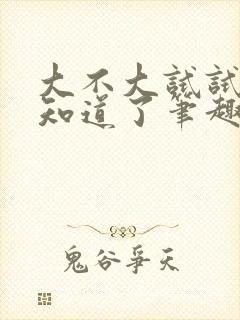 大不大试试
知道了笔趣
鬼谷争天